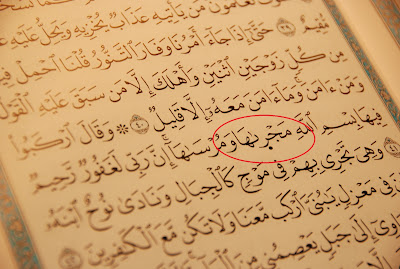 تَعْلَمُونَ مَن يَأْتِيهِ عَذَابٌ يُخْزِيهِ وَيَحِلُّ عَلَيْهِ
مُّقِيمٌ ٣٩ حَتَّىٰٓ إِذَا جَآءَ أَمْرُنَا وَفَارَ ٱلتَّنُّورُ قُلْنَا ٱحْمِلْ
مِن كُلٍّ زَوْجَيْنِ ٱثْنَيْنِ وَأَهْلَكَ إِلَّا مَن سَبَقَ عَلَيْهِ ٱلْقَوْلُ
وَمَنْ ءَامَنَ وَمَآ ءَامَنَ مَعَهُۥٓ إِلَّا قَلِيلٌ ٤٠ ۞ وَقَالَ ٱرْكَبُوا۟
فِيهَا بِسْمِ ٱللَّهِ مَجْر۪ىٰهَا وَمُرْسَىٰهَآ إِنَّ رَبِّى لَغَفُورٌ رَّحِيمٌ
٤١ وَهِىَ تَجْرِى بِهِمْ فِى مَوْجٍ كَٱلْجِبَالِ وَنَادَىٰ نُوحٌ ٱبْنَهُۥ
فِى مَعْزِلٍ يَٰبُنَىَّ ٱرْكَب مَّعَنَا وَلَا تَكُن مَّعَ ٱلْكَٰفِرِينَ ٤٢
إِلَىٰ جَبَلٍ يَعْصِمُنِى مِنَ